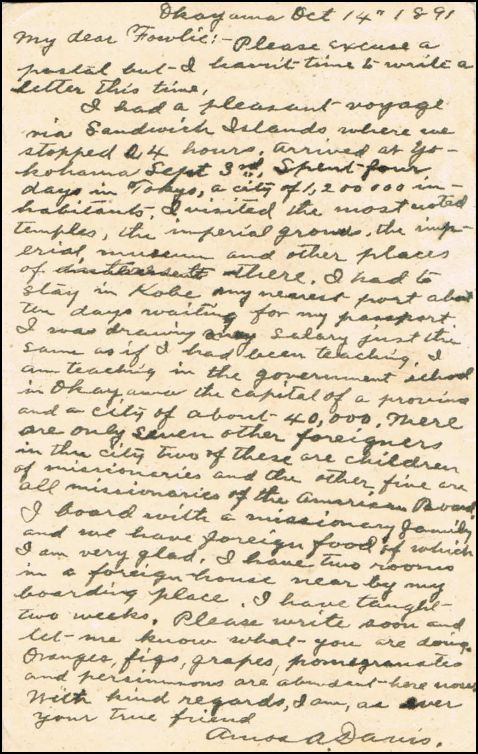 Okayama Oct 14th 1891
My dear Fowlie:- Please excuse a
postal but I havn't time to write a
letter this time.
I had a pleasant voyage
via Sandwich Islands where we
stopped 24 hours. arrived at Yo-
kohama Sept 3rd. Spent four
days in Tokyo, a city of 1,200 000 in-
habitants. I visited the most noted
temples, the imperial grounds, the imp-
erial museum and other places
of there. I had to
stay in Kobe my nearest port about
ten days waiting for my passport.
I was drawing my salary just the
same as if I had been teaching. I
am teaching in the government school
in Okayama the capital of a province
and a city of about 40,000. There
are only seven other foreigners
in the city two of these are children
of missionaries and the other five are
all missionaries of the American Board.
I board with a missionary family
and we have foreign food of which
I am very glad. I have two rooms
in a foreign house near by my
boarding place. I have taught
two weeks. Please write soon and
let me know what you are doing.
Oranges, figs, grapes, pomegranates
and persimmons are abundant here now.
With kind regards, I am, as ever
your true friend
Amos A. Davis.